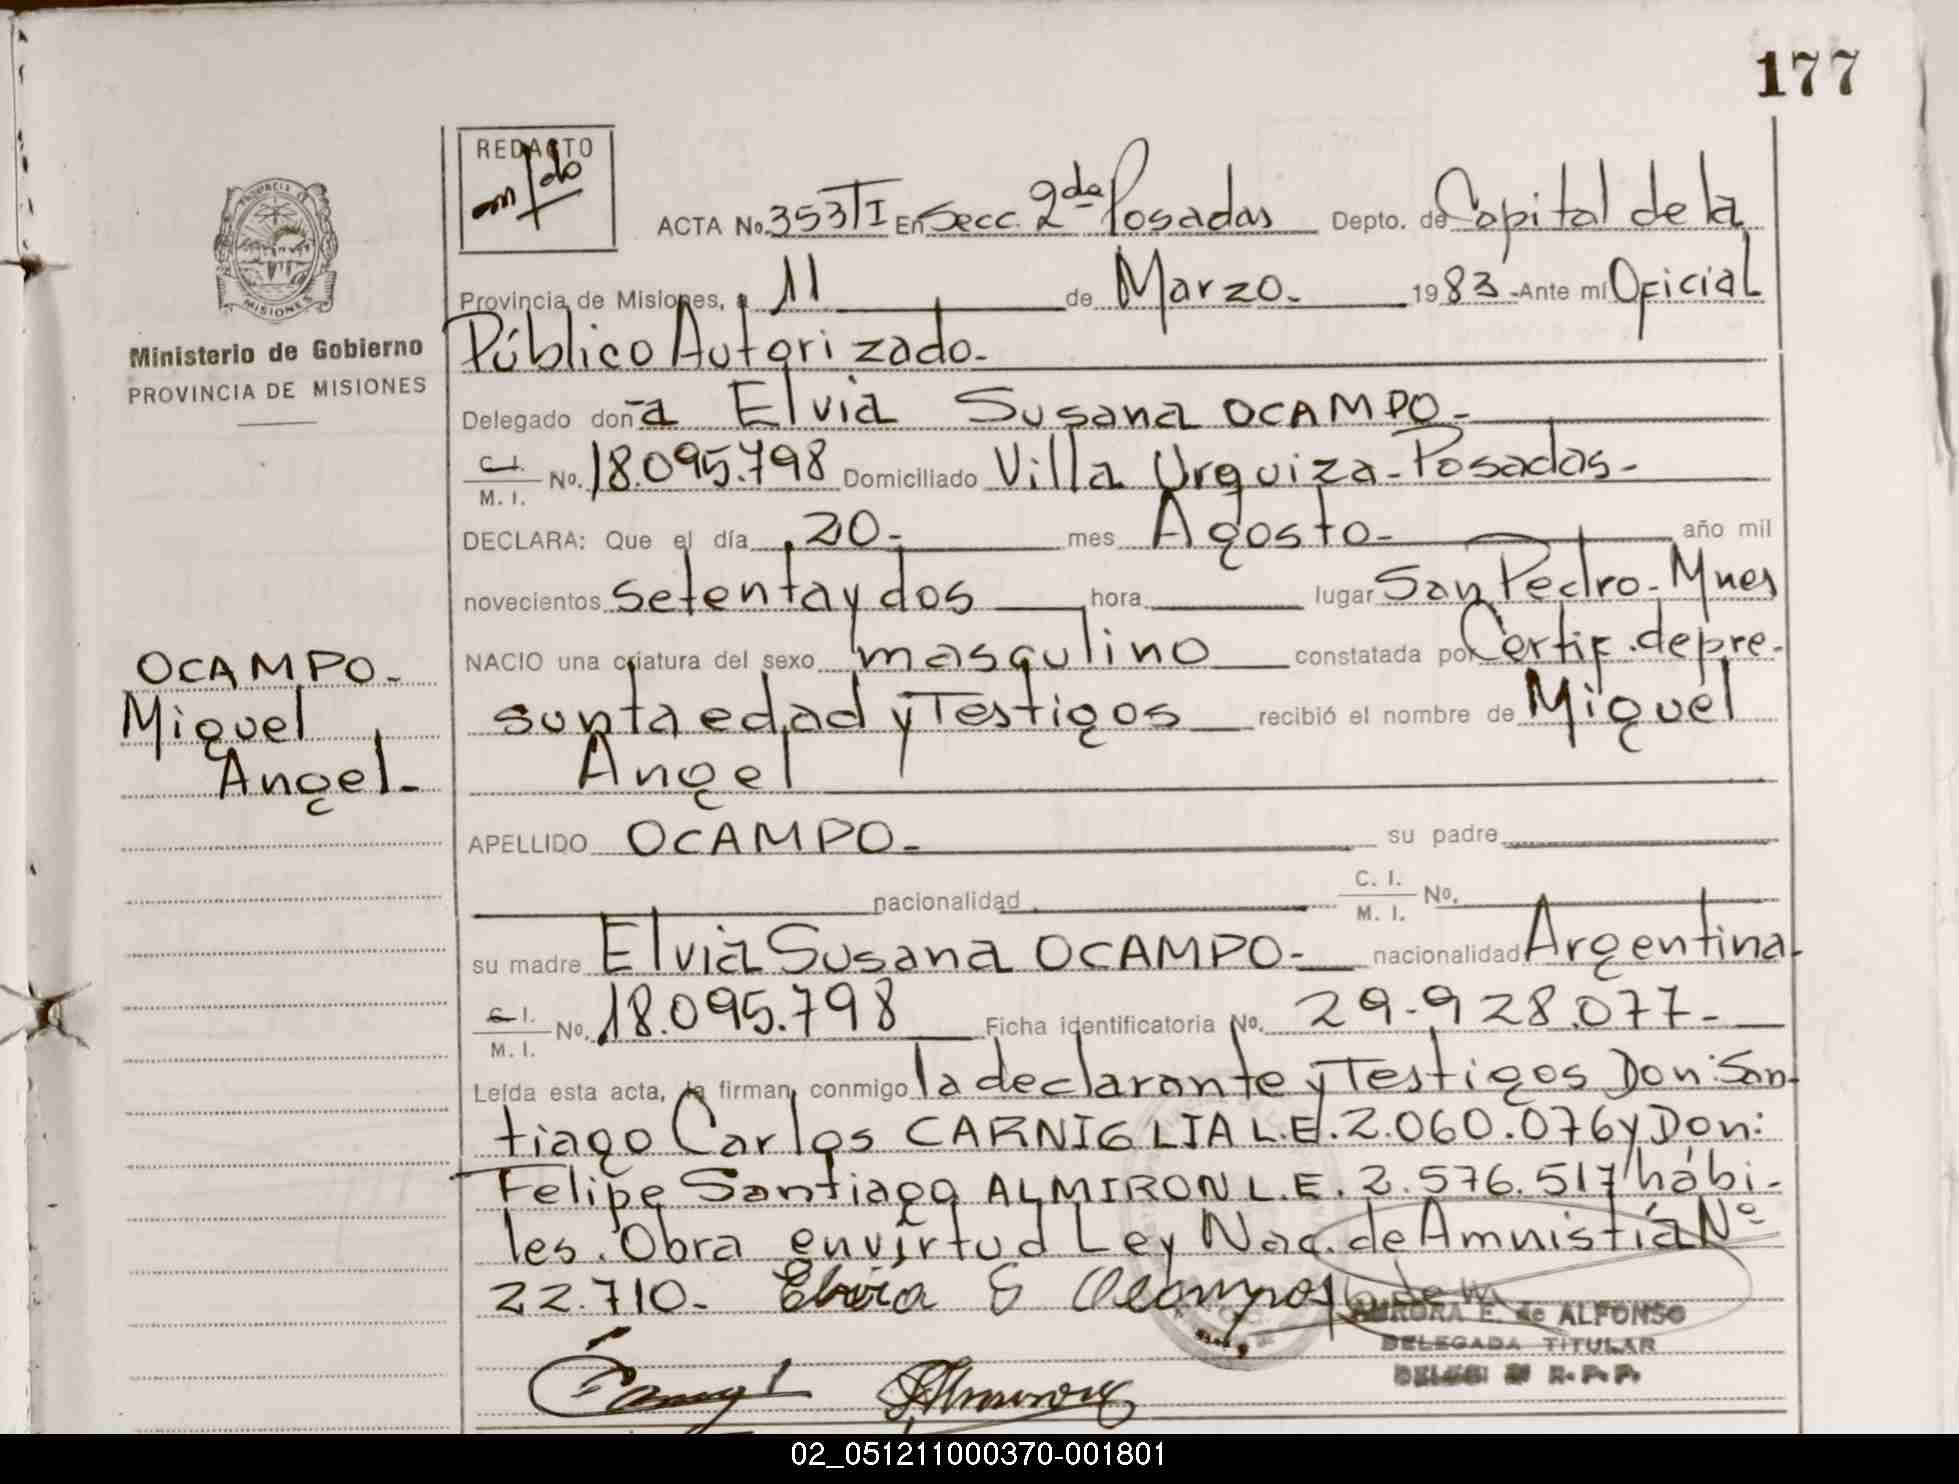 177
REDACTO
ACTA No. 353 T I En Secc. 2da Posadas Depto. de Capital de la
PROVINCIA DE
MISIONES
Provincia de Misiones, a 11 de Marzo- 1983- Ante mí Oficial
Ministerio de Gobierno
PROVINCIA DE MISIONES
Público Autorizado-
Delegado don-a Elvia Susana OCAMPO-
C. I. / M. I. No. 18.095.798 Domiciliado Villa Urquiza- Posadas-
DECLARA: Que el día 20- mes Agosto- año mil
novecientos setenta y dos hora lugar San Pedro- Mnes
NACIO una criatura del sexo masculino constatada por Certif. de pre-
OCAMPO-
Miguel
Angel-
sunta edad y Testigos recibió el nombre de Miguel
Angel
APELLIDO OCAMPO- su padre
nacionalidad C. I. / M. I. No.
su madre Elvia Susana OCAMPO- nacionalidad Argentina-
C. I. / M. I. No. 18.095.798 Ficha identificatoria No. 29-928.077-
Leída esta acta, la firman conmigo la declarante y Testigos Don: San-
tiago Carlos CARNIGLIA L.E. 2.060.076 y Don:
Felipe Santiago ALMIRON L.E. 2.576.517 hábi-
les. Obra en virtud Ley Nac. de Amnistía Nº
22.710- Elvia S Ocampos
AURORA E. de ALFONSO
DELEGADA TITULAR
R. P. P.
02_051211000370-001801